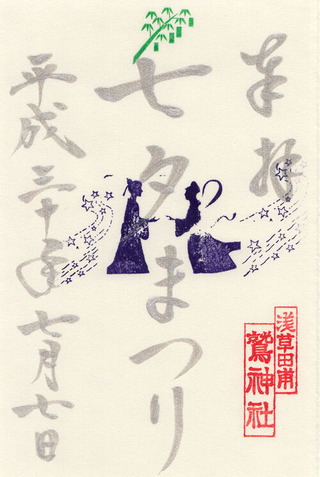 奉拝
七夕まつり
平成三十年七月七日
浅草田甫
鷲神社